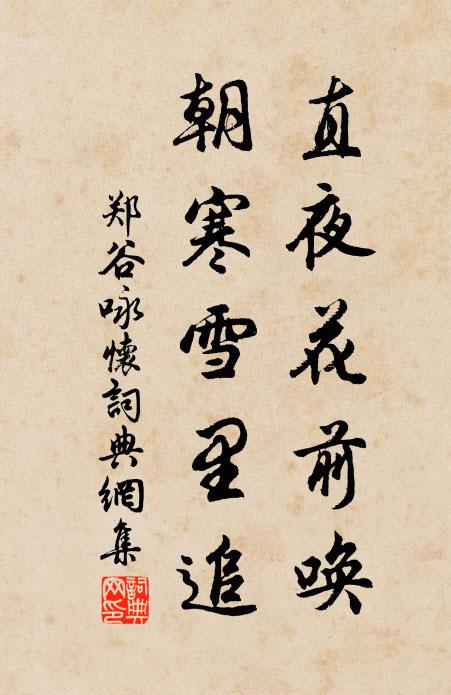 直夜花前唤
朝寒雪里追
郑谷咏懷詞典網集
詞典网印